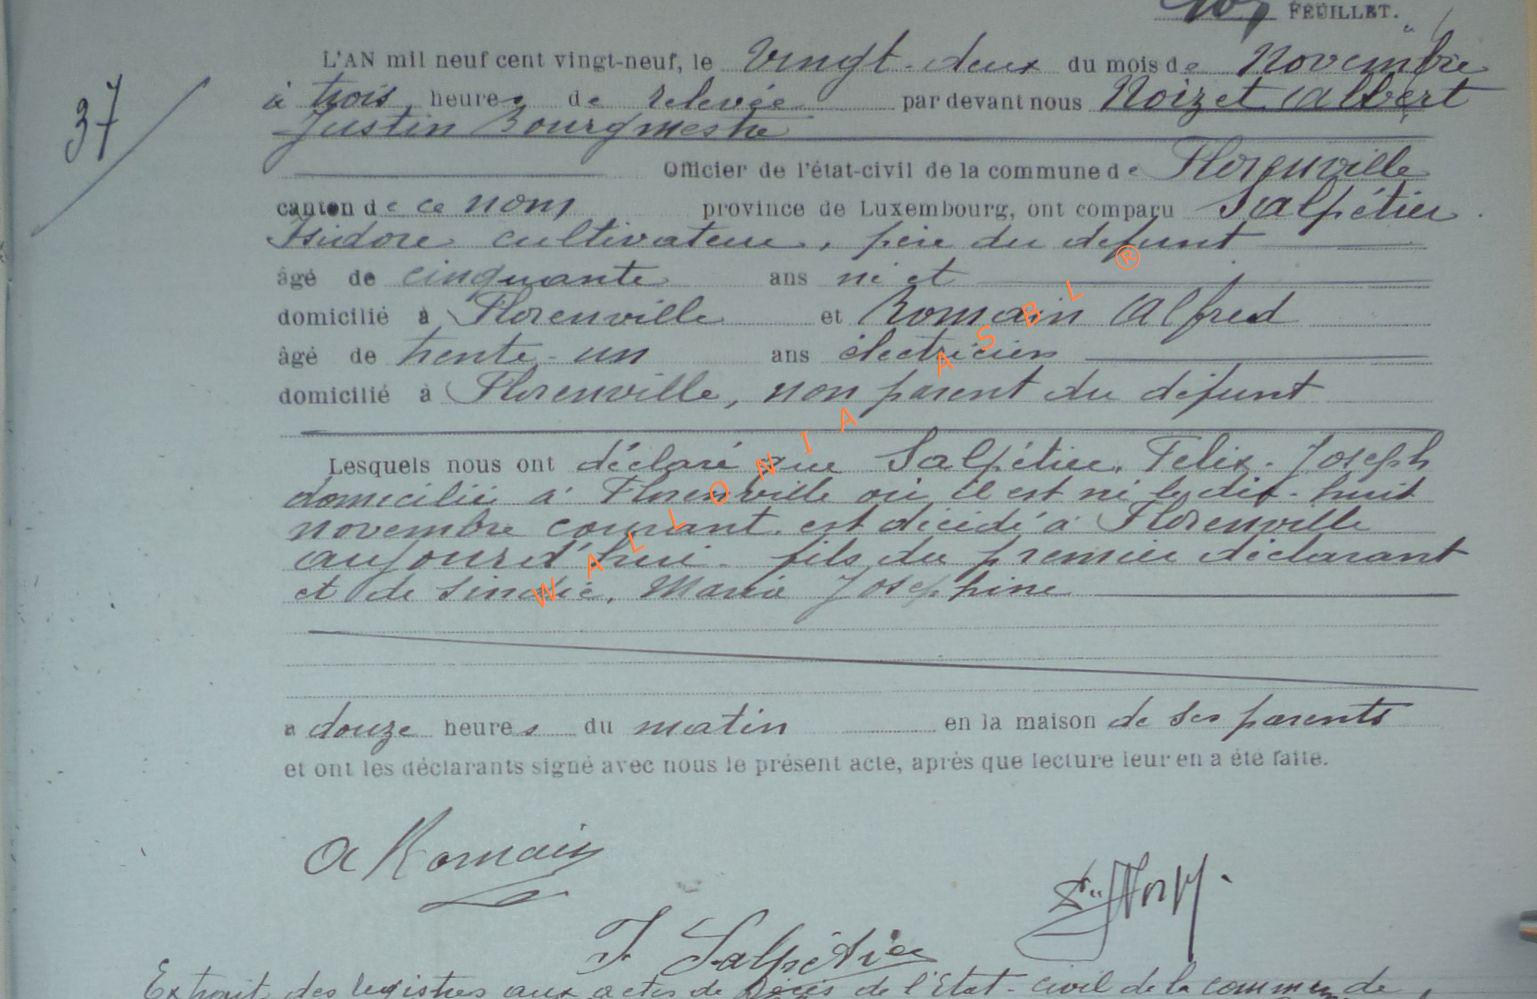 FEUILLET.
37
L'AN mil neuf cent vingt-neuf, le Vingt-deux du mois de Novembre
à trois heures de relevée par devant nous Noizet Albert
Justin Bourgmestre
Officier de l'état-civil de la commune de Florenville
canton de ce nom province de Luxembourg, ont comparu Salpétier
Isidore cultivateur, père du défunt
âgé de cinquante ans né et
domicilié à Florenville et Romain Alfred
âgé de trente-un ans électricien
domicilié à Florenville, non parent du défunt
Lesquels nous ont déclaré que Salpétier, Felix-Joseph
domicilié à Florenville où il est né le dix-huit
novembre courant est décédé à Florenville
aujourd'hui fils du premier déclarant
et de Maria Josephine
à douze heures du matin en la maison de ses parents
et ont les déclarants signé avec nous le présent acte, après que lecture leur en a été faite.
A Romain
I Salpétier
Extrait des registres aux actes de Décès de l'Etat-civil de la commune de
WALLONIA ASBL ®